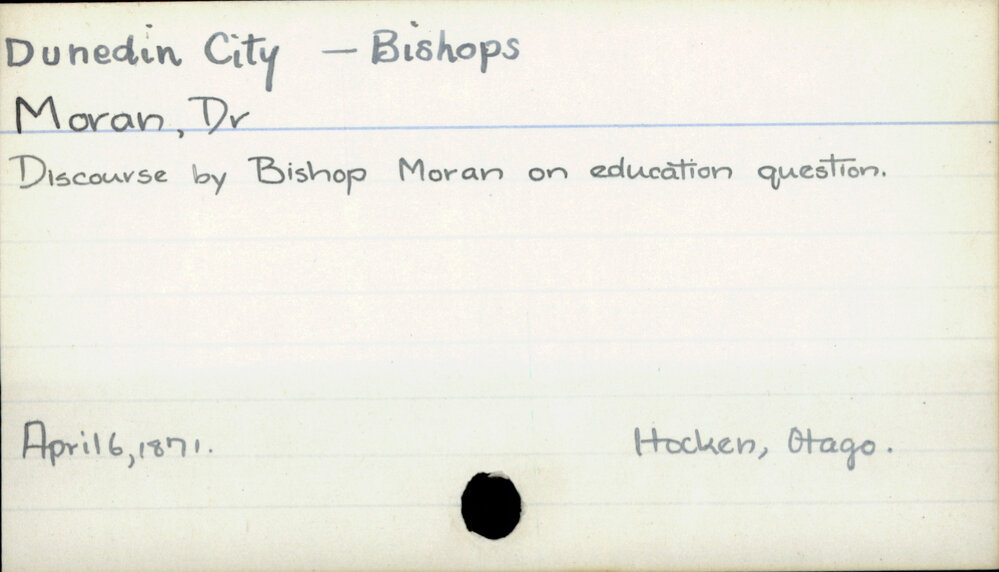 Dunedin City — Bishops
Moran, Dr
Discourse by Bishop Moran on education question.
April 6, 1871.
Hocken, Otago.